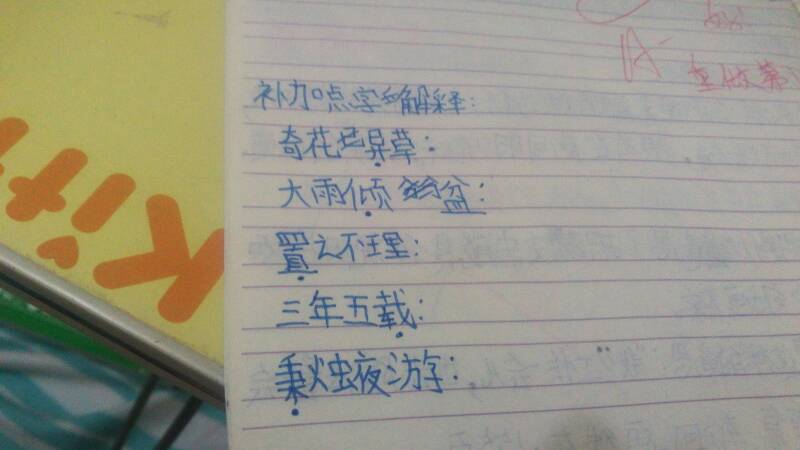 Kitt
A-
补加点字的解释:
奇花异草:
大雨倾盆:
置之不理:
三年五载:
秉烛夜游: